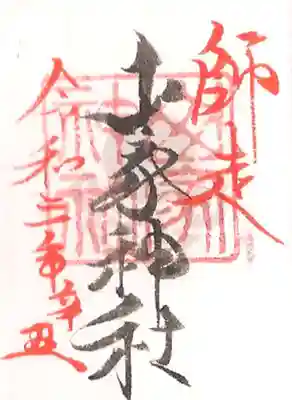 師走
山家神社
令和三年辛丑